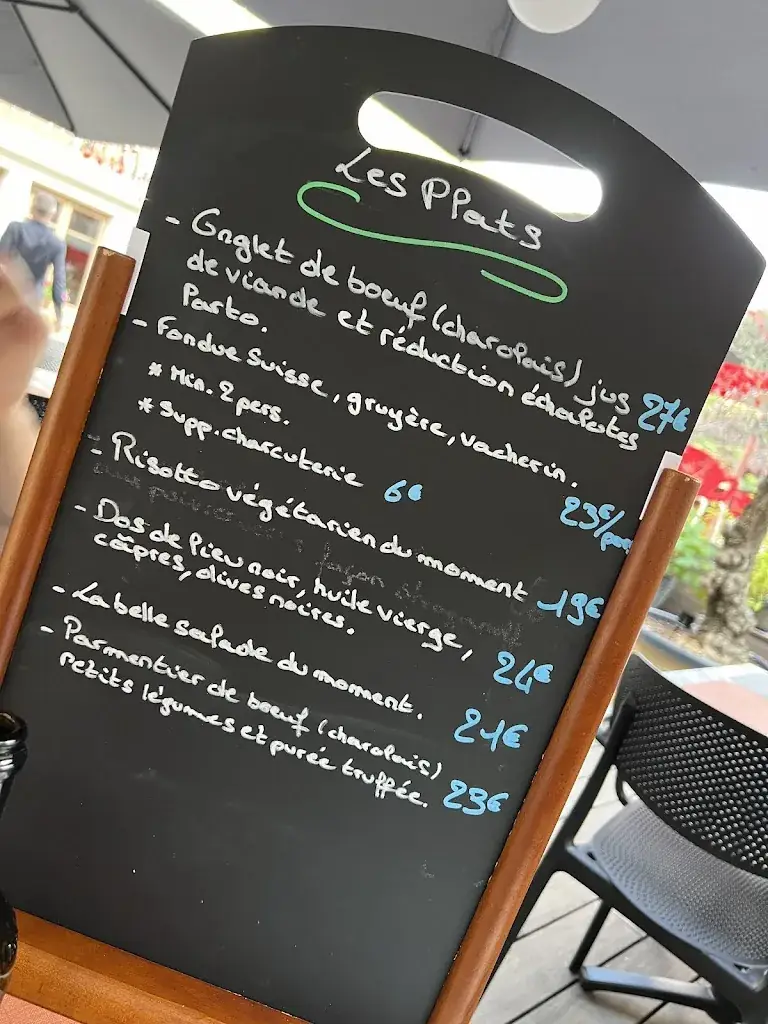 Les Plats
- Onglet de boeuf (charolais) jus
de viande et réduction échalotes 27€
Porto.
- Fondue Suisse, gruyère, vacherin.
* Min. 2 pers. 23€/pers
* Supp. charcuterie 6€
- Risotto végétarien du moment 19€
- Dos de lieu noir, huile vierge,
câpres, olives noires. 24€
- La belle salade du moment. 21€
- Parmentier de boeuf (charolais)
petits légumes et purée truffée. 23€